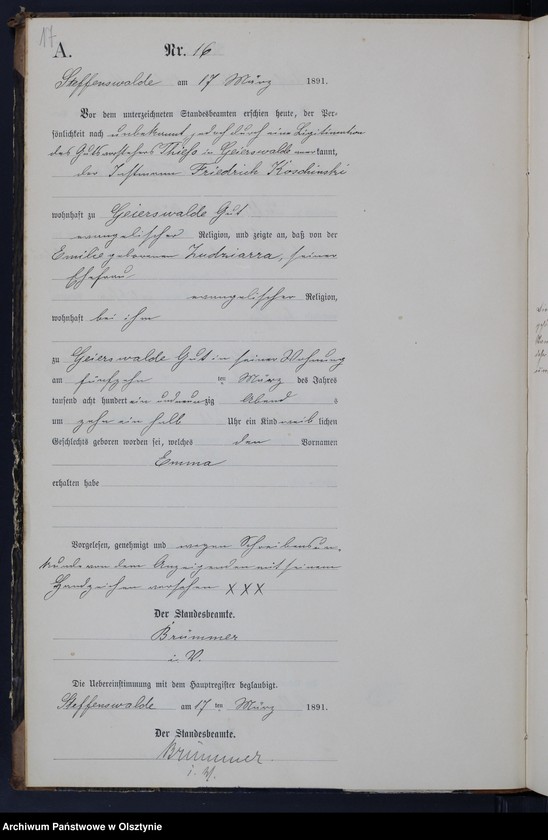 17
A.
Nr. 16
Steffenswalde am 17 März 1891.
Vor dem unterzeichneten Standesbeamten erschien heute, der Per-
sönlichkeit nach unbekannt, jedoch durch eine Legitimation
des Gutsvorstehers Thieß in Geierswalde anerkannt,
der Instmann Friedrich Koschinski
wohnhaft zu Geierswalde Gut
evangelischer Religion, und zeigte an, daß von der
Emilie geborenen Zudziarra, seiner
Ehefrau
evangelischer Religion,
wohnhaft bei ihm
zu Geierswalde Gut in seiner Wohnung
am fünfzehn ten März des Jahres
tausend acht hundert ein und neunzig Abend s
um zehn ein halb Uhr ein Kind weib lichen
Geschlechts geboren worden sei, welches den Vornamen
Emma
erhalten habe
Vorgelesen, genehmigt und wegen Schreibensun-
kunde von dem Anzeigenden mit seinem
Handzeichen versehen XXX
Der Standesbeamte.
Brümmer
i. V.
Die Uebereinstimmung mit dem Hauptregister beglaubigt.
Steffenswalde am 17 ten März 1891.
Der Standesbeamte.
Brümmer
i. V.
Archiwum Państwowe w Olsztynie